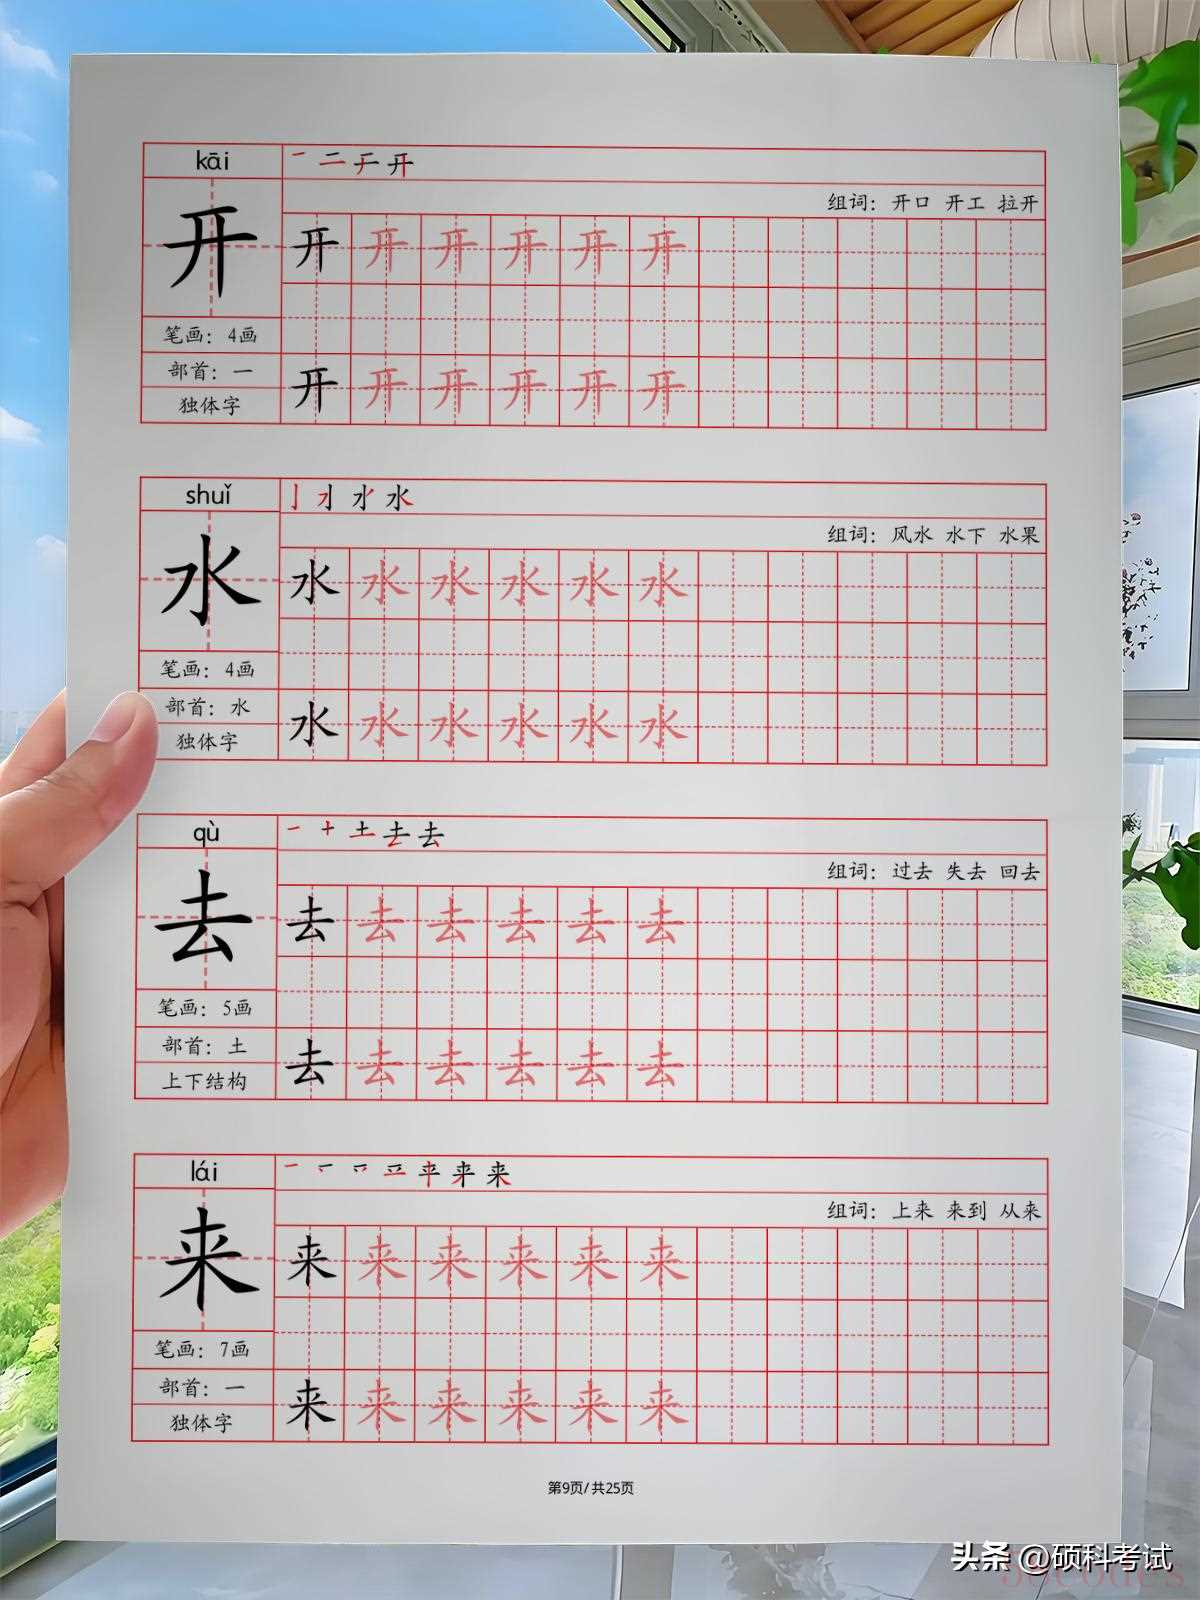 kāi
开
组词：开口 开工 拉开
开 开 开 开 开 开
笔画：4画
部首：一
独体字
开 开 开 开 开 开
shuǐ
水
组词：风水 水下 水果
水 水 水 水 水 水
笔画：4画
部首：水
独体字
水 水 水 水 水 水
qù
一 十 土 去 去
去
组词：过去 失去 回去
去 去 去 去 去 去
笔画：5画
部首：土
上下结构
去 去 去 去 去 去
lái
来
组词：上来 来到 从来
来 来 来 来 来 来
笔画：7画
部首：一
独体字
来 来 来 来 来 来
第9页/共25页
头条 @硕科考试